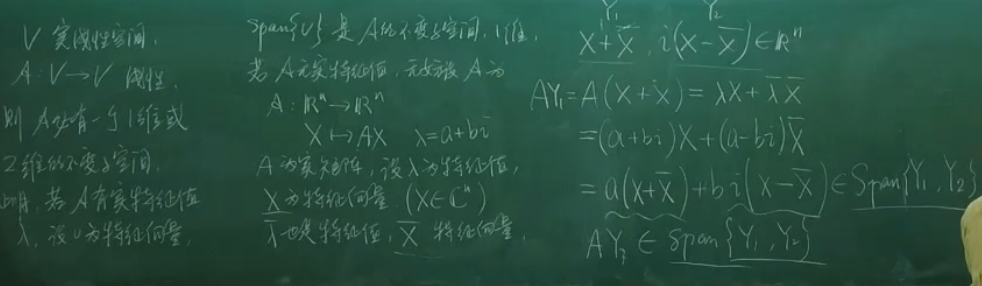 V 实线性空间.
A: V→V 线性.
则 A必有一个1维或
2维的不变子空间.
证明. 若 A有实特征值
λ, 设 v 为特征向量,
span{v} 是 A的不变子空间, 1维.
若 A无实特征值, 无妨设 A 为
A: ℝⁿ→ℝⁿ
X ↦ AX λ=a+bi
A 为实矩阵, 设λ为特征值,
X 为特征向量. (X∈ℂⁿ)
λ̄ 也是特征值, X̄ 特征向量.
Y₁ Y₂
X+X̄, i(X-X̄)∈ℝⁿ
AY₁=A(X+X̄)=λX+λ̄X̄
=(a+bi)X+(a-bi)X̄
=a(X+X̄)+bi(X-X̄)∈Span{Y₁,Y₂}
AY₂∈Span{Y₁,Y₂}